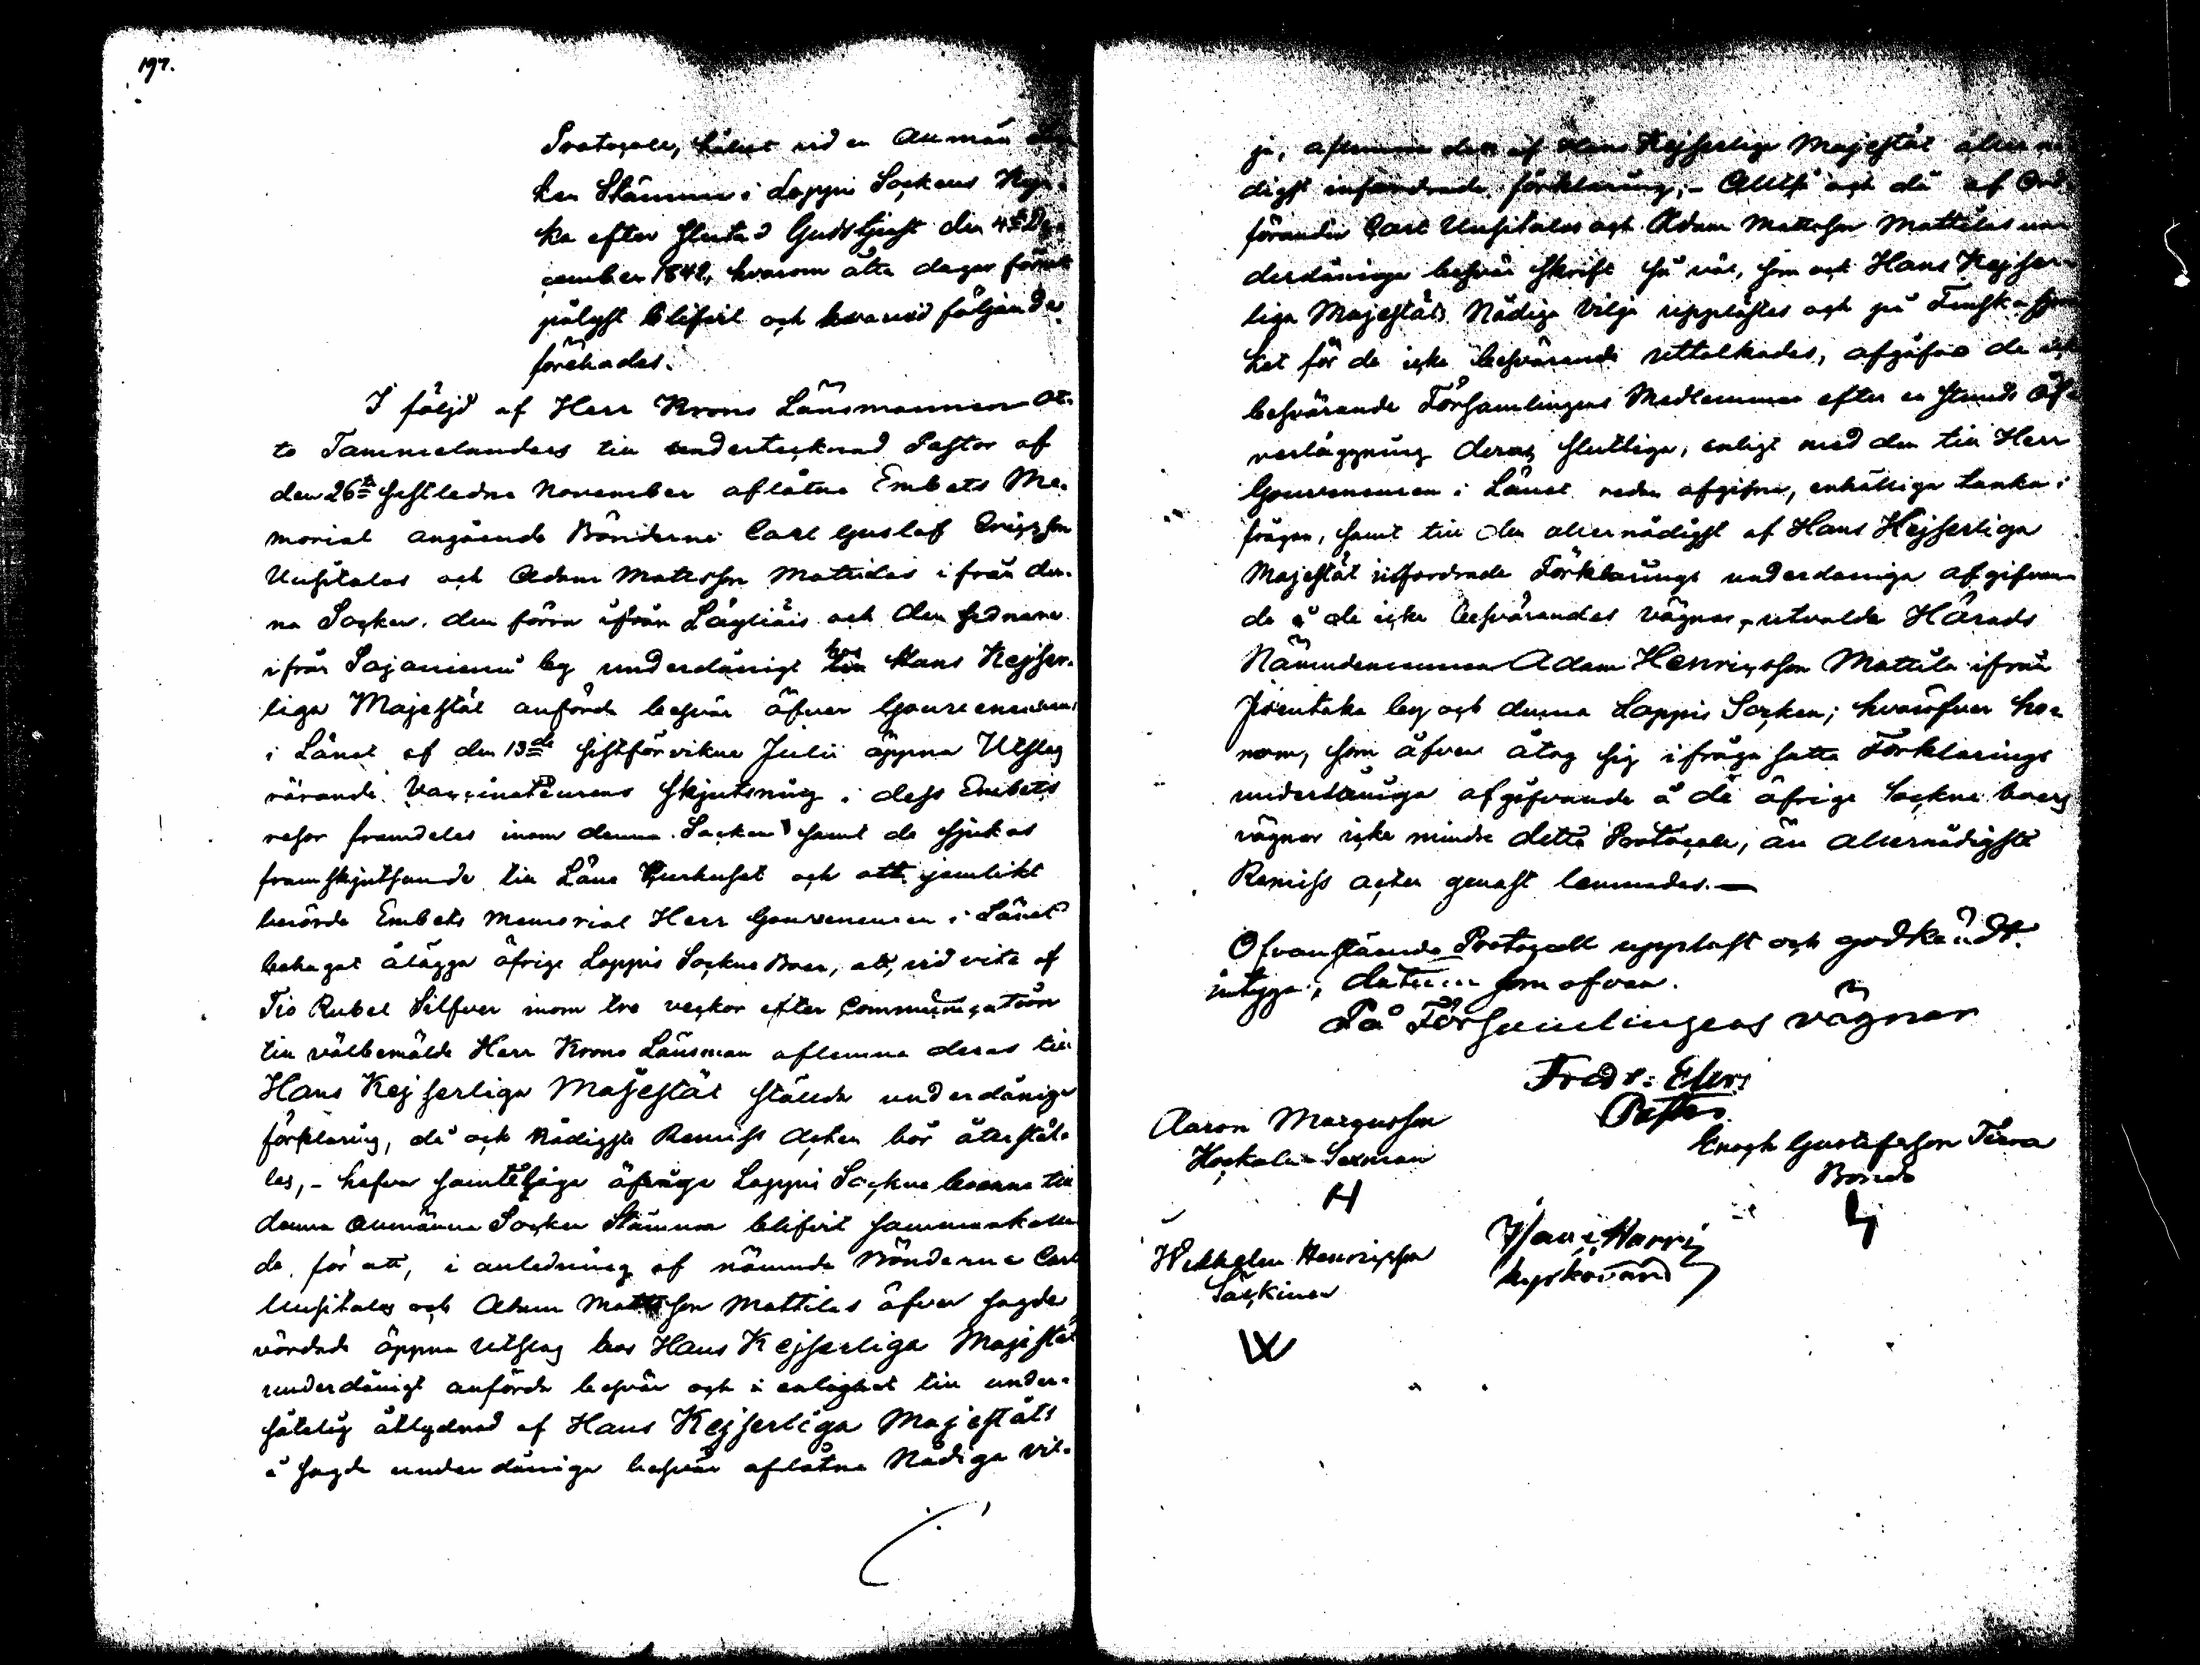 197.
Protocoll, hållet vid en Allmän
ken Stämma i Loppis Sockens Kyr-
ka efter slutad Gudstjenst den 4de De-
cember 1842, hvarom åtta dagar förut
pålyst blifvit och hvarvid följande
förehades.
I följd af Herr Krono Länsmannen Ot-
to Tammelanders till undertecknad Pastor af
den 26te sistledne November aflåtna Embets Me-
morial angående Bönderne Carl Gustaf Ericsson
Uusitalos och Adam Mattsson Mattilas ifrån den-
na Socken, den förra ifrån Läyliäis och den sednare
ifrån Sajaniemi by underdånigt hos Hans Kejser-
liga Majestät anförde besvär öfver Gouverneurens
i Länet af den 13de sistförvikne Julii öppna Utslag
rörande Vaccinateurens skjutsning i dess Embets
resor framdeles inom denna Socken samt de sjukas
framskjutsande till Läns Curhuset och att jemlikt
berörde Embets Memorial Herr Gouverneuren i Länet
behagat ålägga öfrige Loppis Sockne Boer, att, vid vite af
Tio Rubel Silfver inom tre veckor efter Communication
till välbemälde Herr Krono Länsman aflemna deras till
Hans Kejserliga Majestät ställda underdåniga
förklaring, då och Nådigste Remiss Acten bör återstäl-
les, - hafva samtelige öfrige Loppis Sockne boerne till
denna Allmänna Socken Stämma blifvit sammankalla-
de, för att, i anledning af nämnde Bönderne Carl
Uusitalos och Adam Mattsson Mattilas öfver sagde
vördade öppna Utslag hos Hans Kejserliga Majestät
underdånigt anförda besvär och i enlighet till under-
såtelig åtlydnad af Hans Kejserliga Majestäts
å sagde underdåniga besvär aflåtne Nådiga vil-
ja, aflemna den af Hans Kejserliga Majestät allernå-
digst infordrade förklaring; - Alltså och då af Ord-
föranden Carl Uusitalos och Adam Mattsson Mattilas un-
derdåniga besvärs skrift så väl, som och Hans Kejser-
liga Majestäts Nådiga Vilja upplästes och på Finska
ket för de icke besvärande uttalkades, afgåfvo de icke
besvärande Församlingens Medlemmar efter en stunds Öf-
verläggning deras slutliga, enligt med den till Herr
Gouverneuren i Länet redan afgifna, enhälliga tanka i
frågan, samt till den allernådigst af Hans Kejserliga
Majestät infordrade Förklarings underdåniga afgifvan-
de å de icke besvärandes vägnar, utvalde Härads
Nämndemannen Adam Henricsson Mattila ifrån
Pirutaka by och denna Loppis Socken; hvaröfver ho-
nom, som äfven åtog sig ifrågasatta Förklarings
underdåniga afgifvande å de öfrige Sockne boers
vägnar icke mindre detta Protocoll, än allernådigste
Remiss acten genast lemnades. —
Ofvanstående Protocoll uppläst och godkändt
intyga; datum som ofvan.
På Församlingens vägnar
Fredr: Elers
Pastor
Aaron Marcusson
Hockala Sexman
H
Enoch Gustafsson Terva
Bonde
Wilhelm Henricsson
Säckinen
W
Isaac Harri
kyrkovärd